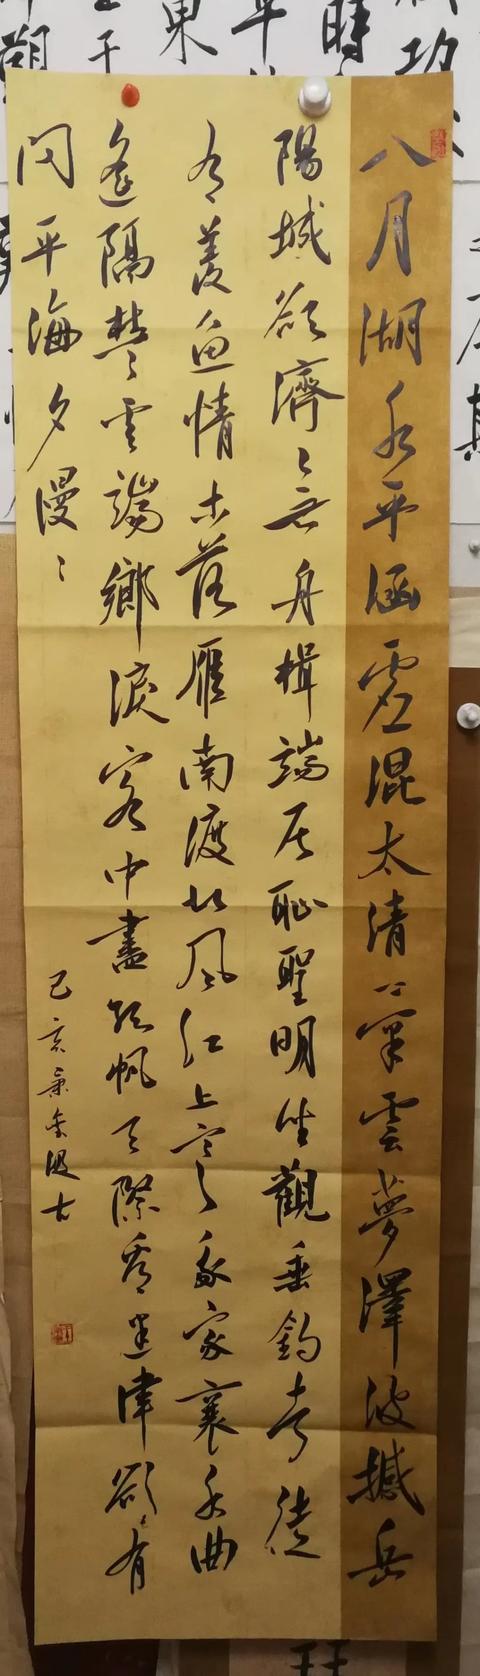 八月湖水平涵虛混太清气蒸雲夢澤波撼岳
陽城欲濟〻無舟楫端居恥聖明坐觀垂釣者徒
有羨魚情木落雁南渡北風江上寒我家襄水曲
遙隔楚雲端鄉淚客中盡孤帆天際看迷津欲有
問平海夕漫〻
己亥